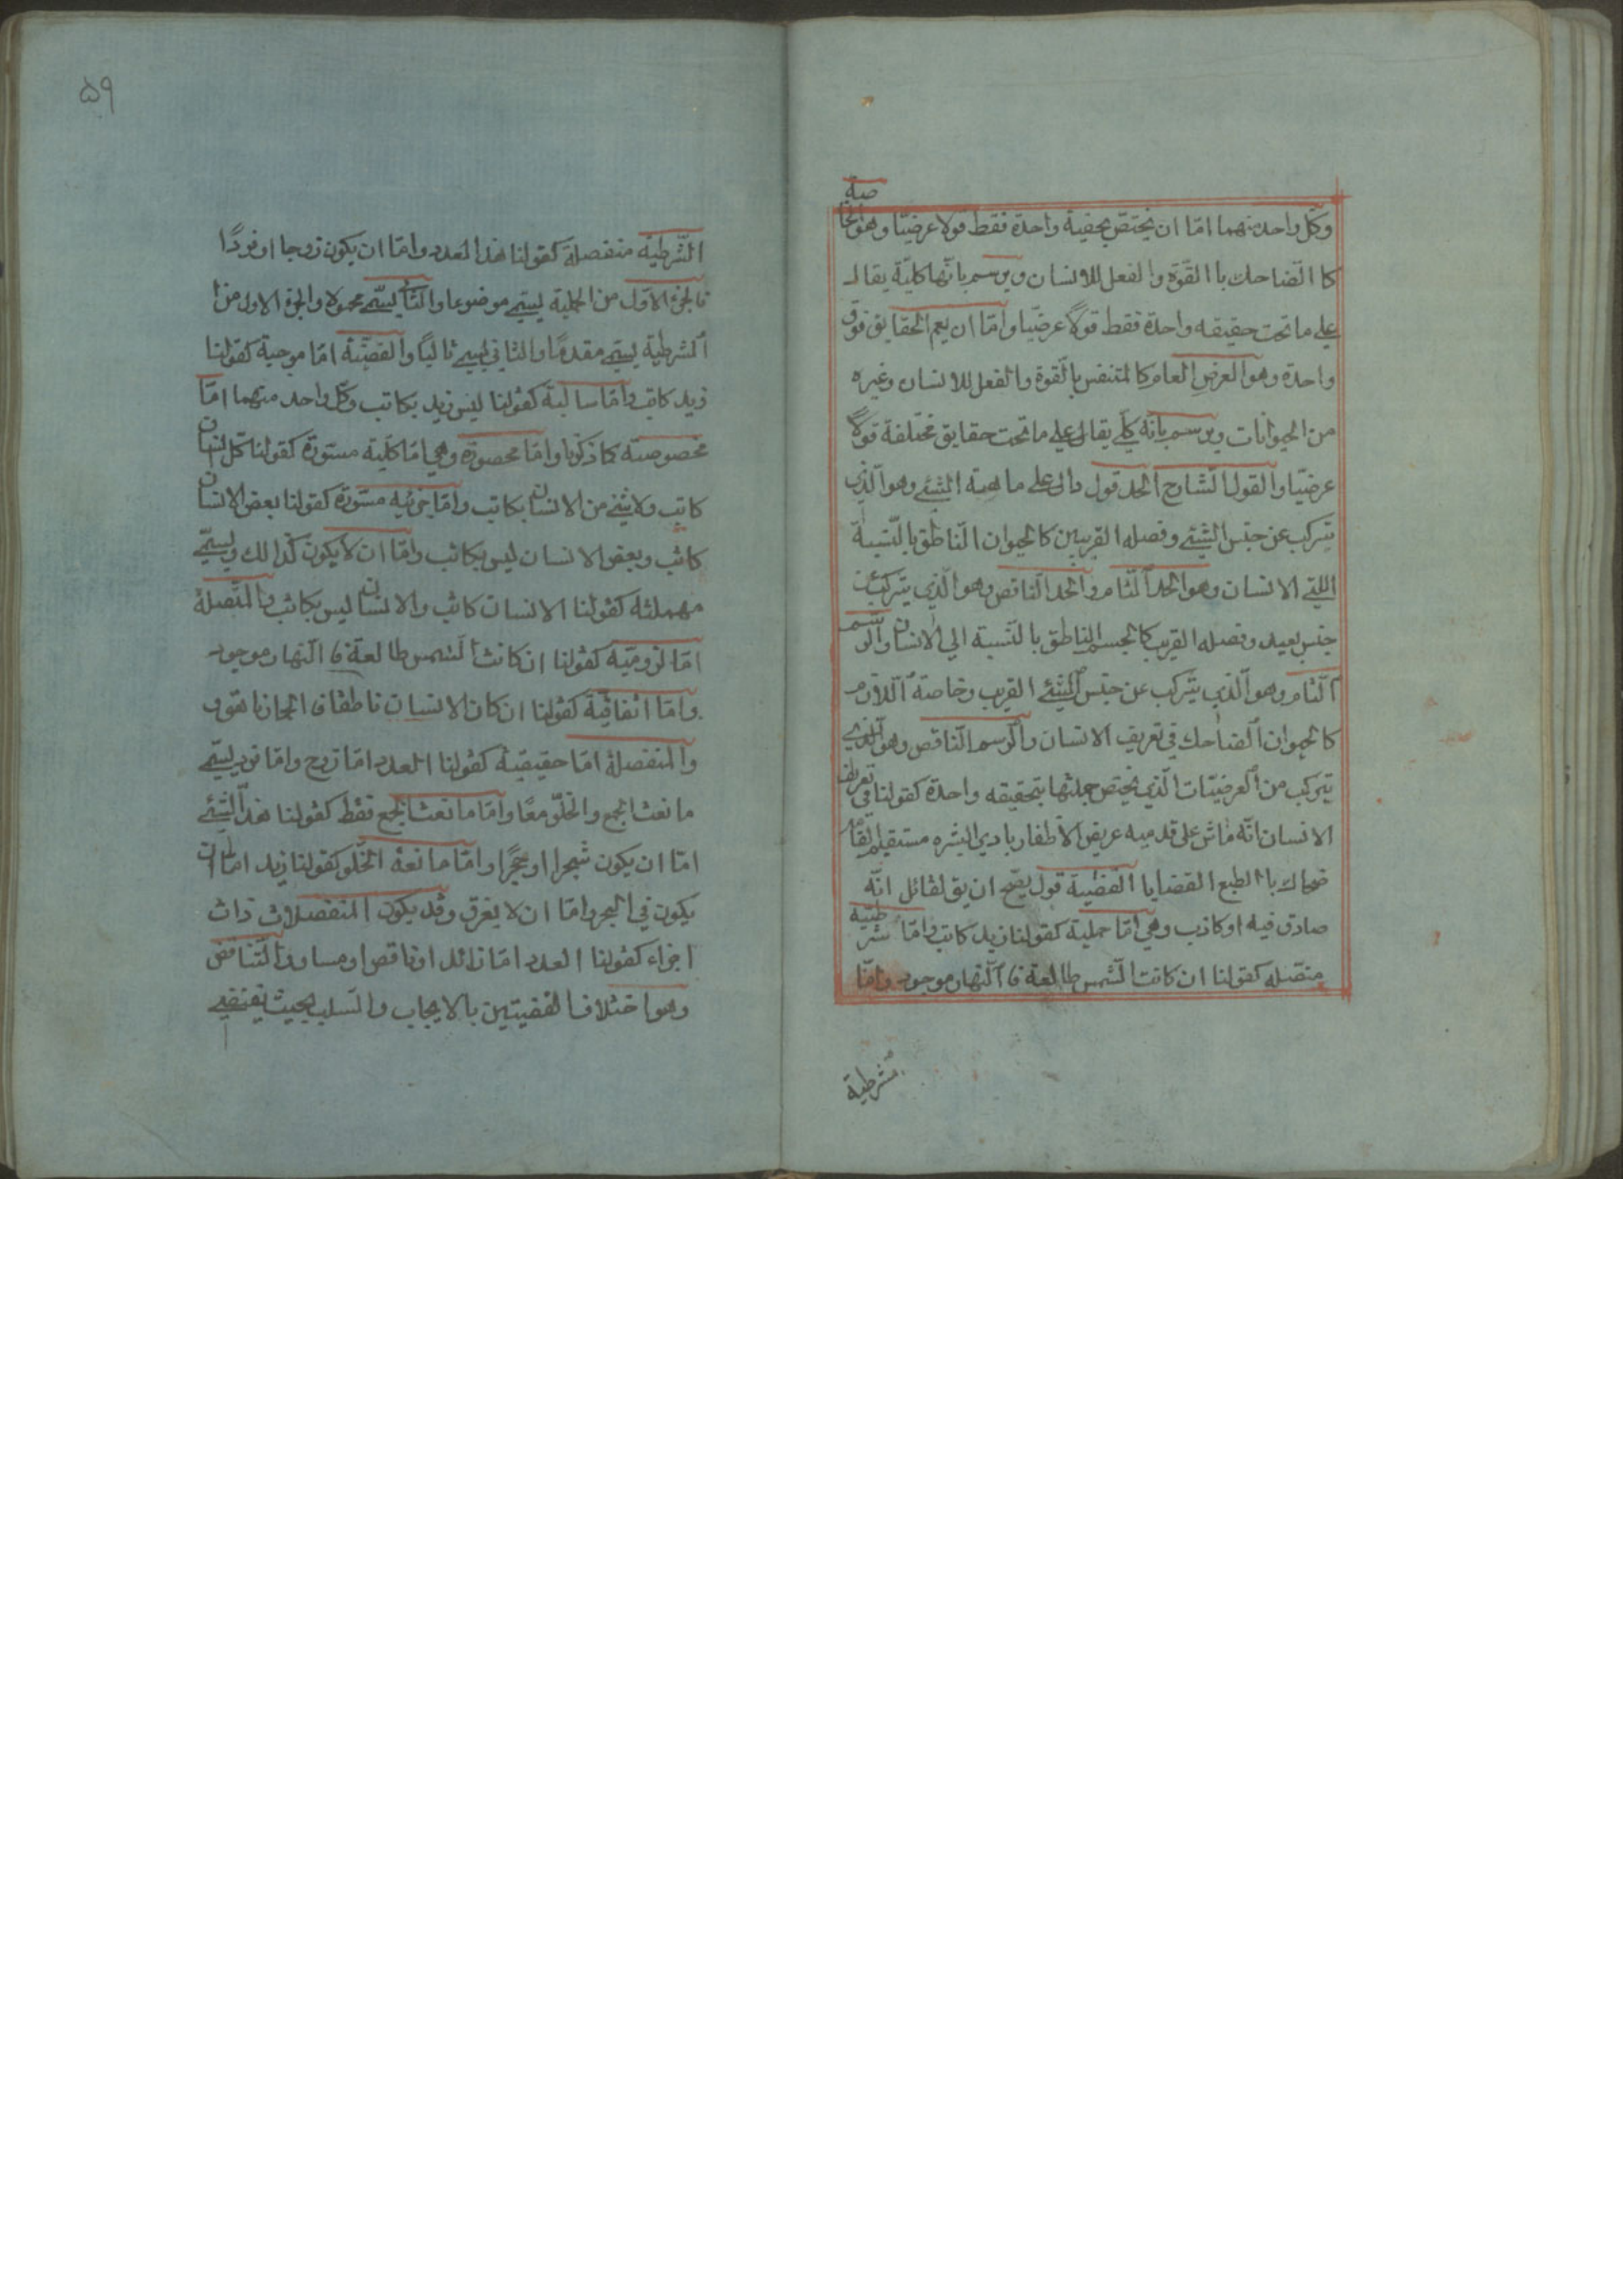 وكل واحد منهما امّا ان يختصّ بحقيقة واحدة فقط قولا عرضيّا وهو الخاصة
كا الضّاحك باا القوّة والفعل للانسان ويرسم بانّها كليّة يقال
علي ما تحت حقيقه واحدة فقط قولاً عرضيّا وامّا ان يعم الحقايق فوق
واحدة وهو العرض العام كا المتنفس باالقوة والفعل للانسان وغيره
من الحيوانات ويرسم بانّه كلّي يقال علي ما تحت حقايق مختلفة قولاً
عرضيّا والقول الشّارح الحد قول دال علي ماهية الشّيئ وهو الّذي
يتركب عن جنس الشّيئ وفصله القريبين كا الحيوان النّاطق باالنّسبة
اللي الانسان وهو الحد التّام والحد النّاقص وهو الّذي يتركب عن
جنس بعيد وفصله القريب كا الجسم النّاطق با النّسبة الي الانسان والرّسم
التّام وهو الّذي يتركب عن جنس الشّيئ القريب وخاصة اللّازم
كا الحيوان الضّاحك في تعريف الانسان والرّسم النّاقص وهو الّذي
يتركب من العرضيّات الّذي يختص جملتها بتحقيقه واحدة كقولنا في تعريف
الانسان انّه ماش علي قدميه عريض الاظفار بادي البشره مستقيم القامة
ضحاك باا لطبع القضايا القضية قول يصّح ان يق لقائل انّه
صادق فيه او كاذب وهي امّا حملية كقولنا زيد كاتب وامّا شرطيّه
متصّله كقولنا ان كانت الشّمس طالعة فا النّهار موجود وامّا
شرطية
۵۹
الشّرطيّة منفصلة كقولنا هذا العدد وامّا ان يكون زوجا او فردًا
فا لجزء الاوّل من الحملية يسمّي موضوعا والثّاني يسمّي محمولا والجزء الاول من
الشرطية يسمّي مقدمًا والثاني يسمي تاليًا والقضيّة امّا موجبة كقولنا
زيد كاتب وامّا سالبة كقولنا ليس زيد بكاتب وكلّ واحد منهما امّا
مخصوصة كما ذكرنا وامّا محصورة وهي امّا كليّة مستورة كقولنا كل انسان
كاتب ولا شيئ من الانسان بكاتب وامّا جزئيه مستورة كقولنا بعض الانسان
كاتب وبعض الانسان ليس بكاتب وامّا ان لا يكون كذالك ويسمّي
مهملته كقولنا الانسان كاتب والانسان ليس بكاتب والمتّصلة
امّا لزوميّة كقولنا ان كانت الشمس طالعة فا النّهار موجود
وامّا اتفاقيّة كقولنا ان كان الانسان ناطقا فا الحمار ناهق
والمنفصلة امّا حقيقية كقولنا العدد امّا زوج وامّا فرد يسمّي
مانعت الجمع والخلّو معًا وامّا مانعت الجمع فقط كقولنا هذا الشّيئ
امّا ان يكون شجرا او حجرًا وامّا مانعة الخلو كقولنا زيد امّا ان
يكون في البحر وامّا ان لا يغرق وقد يكون المنفصلات ذات
اجزاء كقولنا العدد امّا زائد او ناقص او مساو التّناقض
وهو اختلاف القضيتين بالايجاب والسّلب بحيث يقتضي